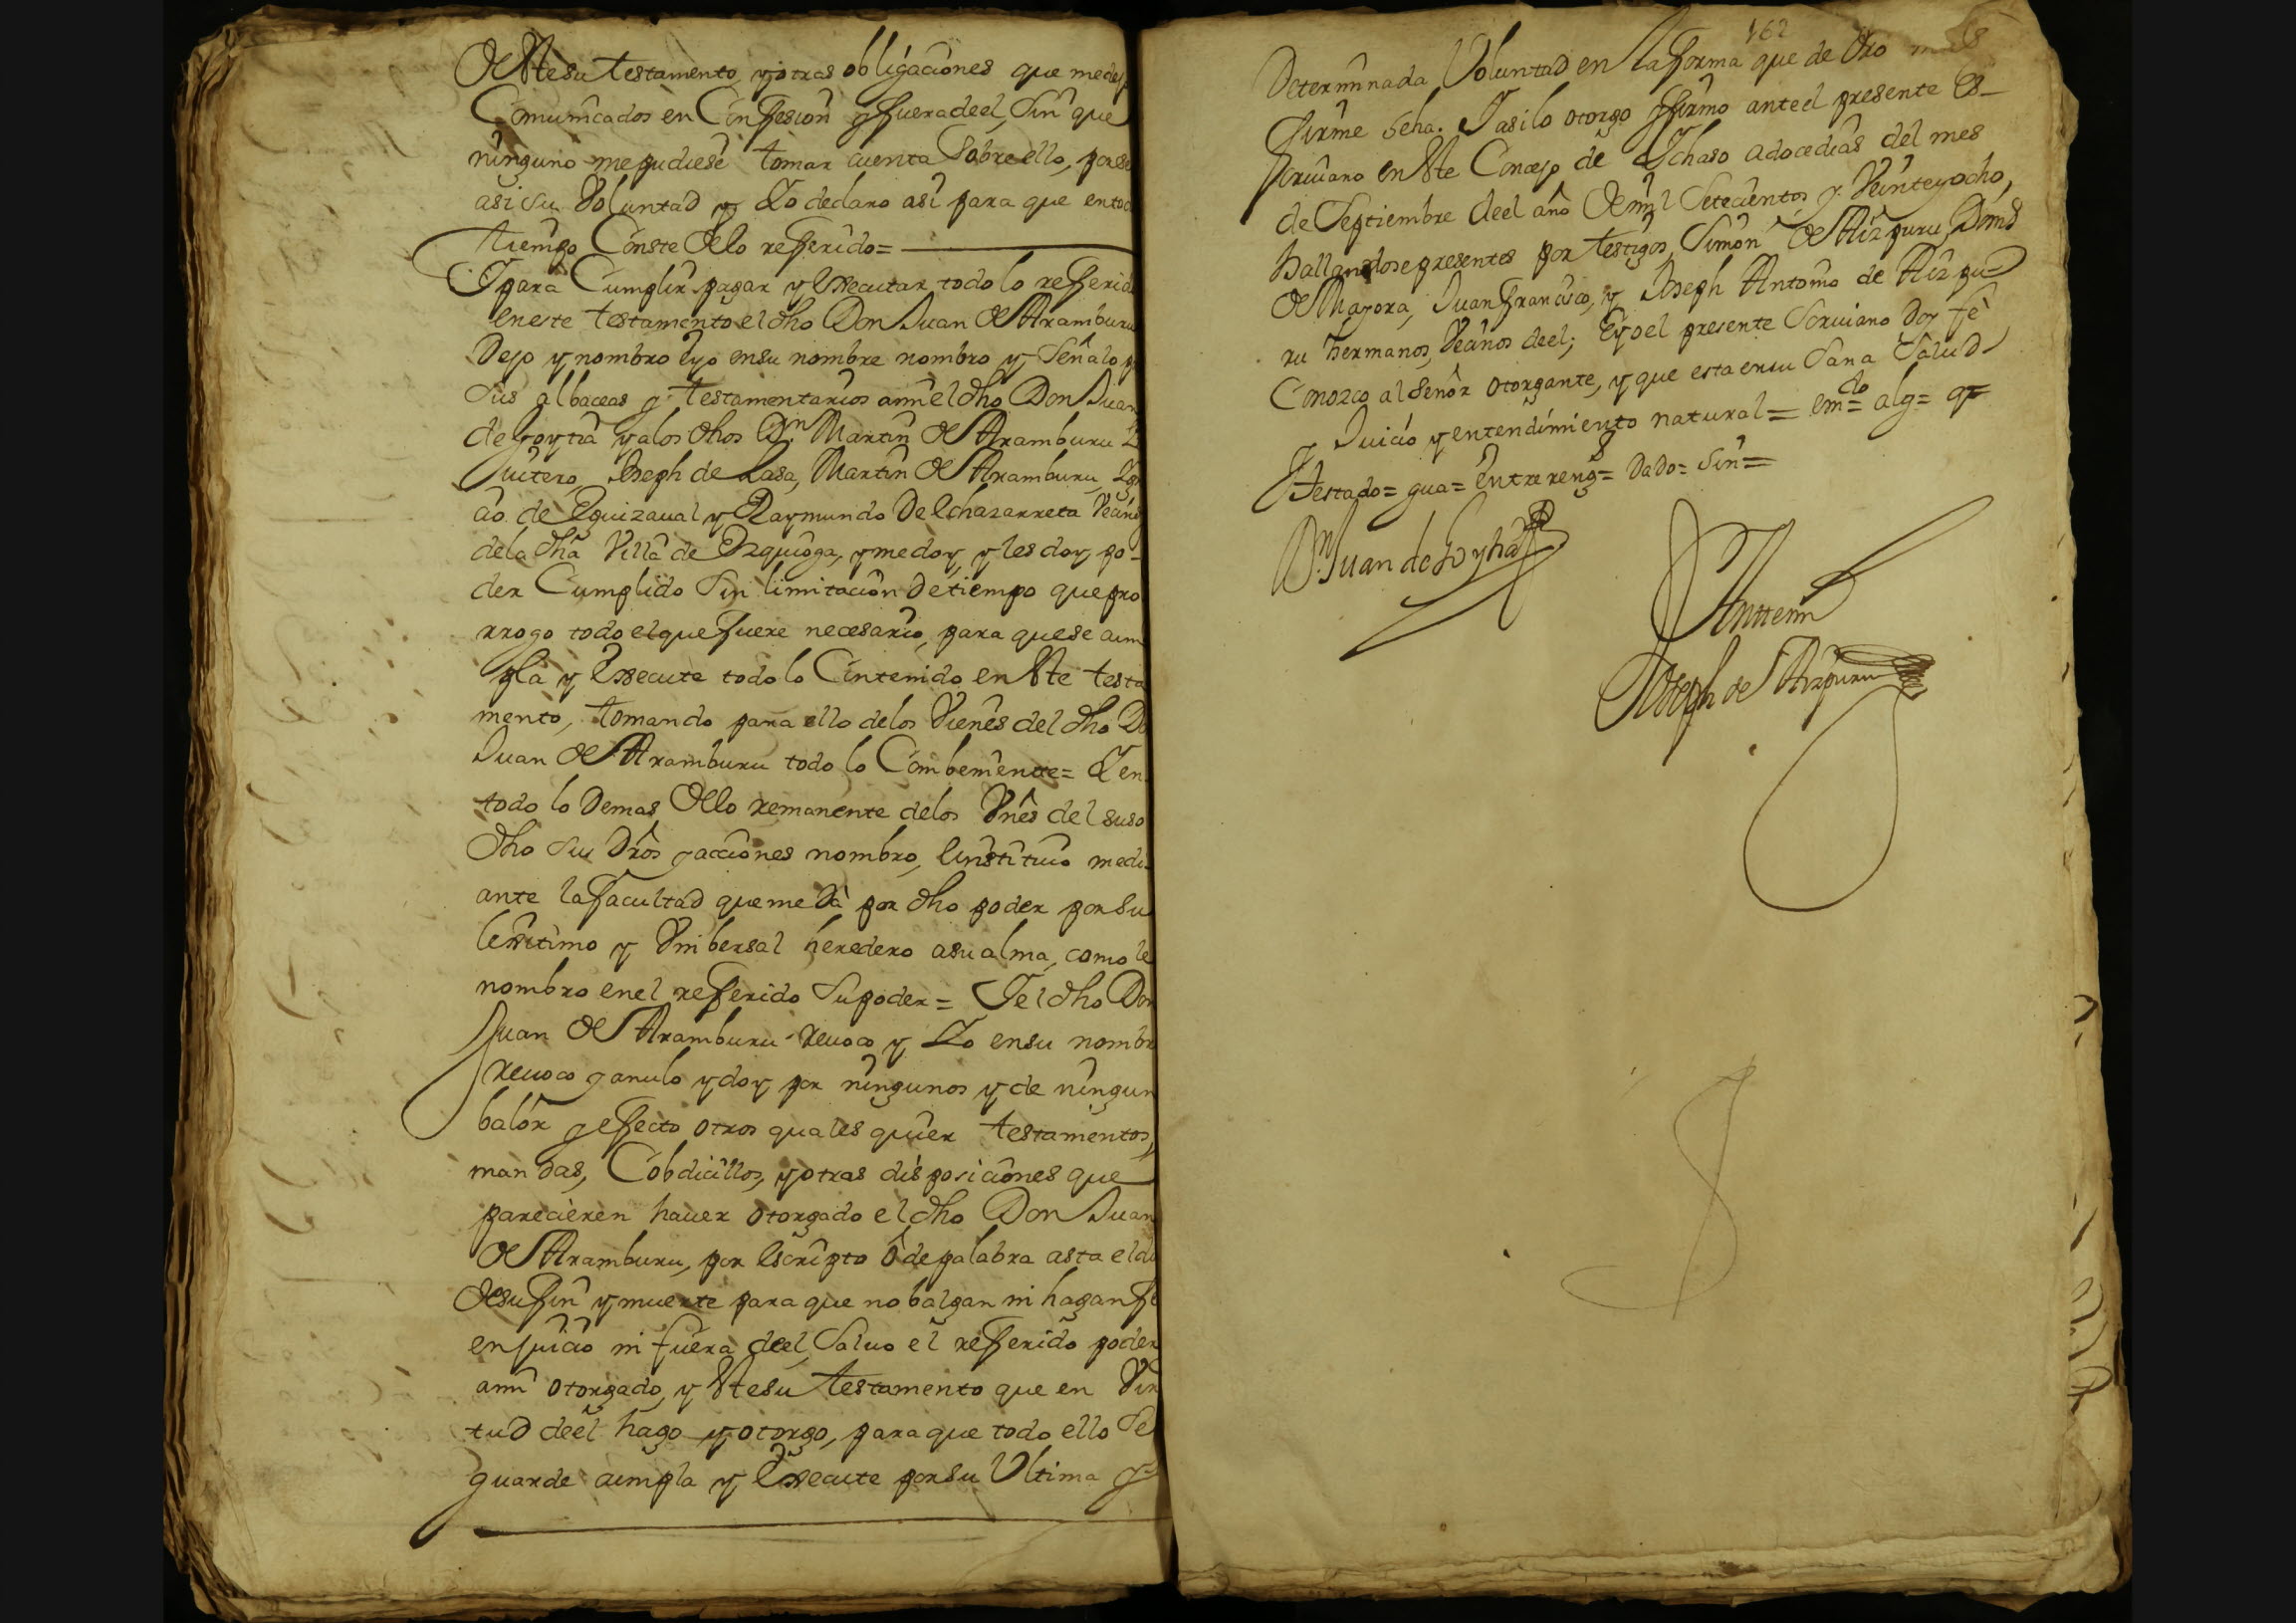 de Ste su testamento, y otras obligaciones que me dej
Comunicados en Confesion y fuera de el, Sin que
ninguno me pudiese tomar cuenta Sobre ello, por se
asi su Voluntad y Yo declaro asi para que en tod
tiempo Conste de lo refferido =
Y para Cumplir pagar y Executar todo lo refferid
en este testamento el dho Don Juan de Aramburu
Dejo y nombro Eyo en su nombre nombro y Señalo p
sus albaceas y testamentarios a mi el dho Don Juan
de Goytia y a los dhos Dn. Martin de Aramburu
Joseph de Lasa, Martin de Aramburu, Ig
cio de Eguizaual y Raymundo De Echazarreta Vecinos
de la dha Villa de Ezquioga, y me doy, y les doy, po-
der Cumplido Sin limitacion De tiempo que pro
rrogo todo el que fuere necesario, para que se cum
pla y Execute todo lo Contenido en Ste testa
mento, tomando para ello de los Vienes del dho Dn
Juan de Aramburu todo lo Combeniente = Y en
todo lo Demas dello remanente de los Vnes del suso
dho su Dros y acciones nombro, Einstituio medi-
ante la facultad que me Da por dho poder por Su
lexitimo y Vnibersal heredero a su alma, como le
nombro en el refferido Su poder = Y el dho Don
Juan de Aramburu reuoco y Yo en su nombre
Reuoco y anulo y doy por ningunos y de ningun
balor y effecto otros quales quier testamentos,
mandas, Cobdicillos, y otras disposiciones que
parecieren hauer otorgado el dho Don Juan
de Aramburu, por Escripto o de palabra asta el di
de su fin y muerte para que no balgan ni hagan fe
en juicio ni fuera de el, Saluo el refferido poder
a mi otorgado, y Ste su testamento que en Vir
tud de el hago y otorgo, para que todo ello Se
guarde cumpla y Execute por su Vltima y
162
Determinada Voluntad en la forma que de dro mas
firme seha. Y asi lo otorgo y firmo ante el presente Es-
criuano en Ste Concejo de Ychaso a doce dias del mes
de Septiembre de el año de mil Setecientos y Veinte y ocho,
Hallandose presentes por testigos, Simon de Aizpuru,
de Mayora, Juan Francisco, y Joseph Antonio de Aizpu
ru hermanos, Vecinos de el; Eyo el presente Scriuano Doy fe
Conozco al Señor otorgante, y que esta en su Sana Salud
y Juicio y entendimiento natural = emdo = alg = q =
Testado = gua = Entrereng = Dado = Sin =
Dn. Juan de Goytia
Antemi
Joseph de Aizpuru